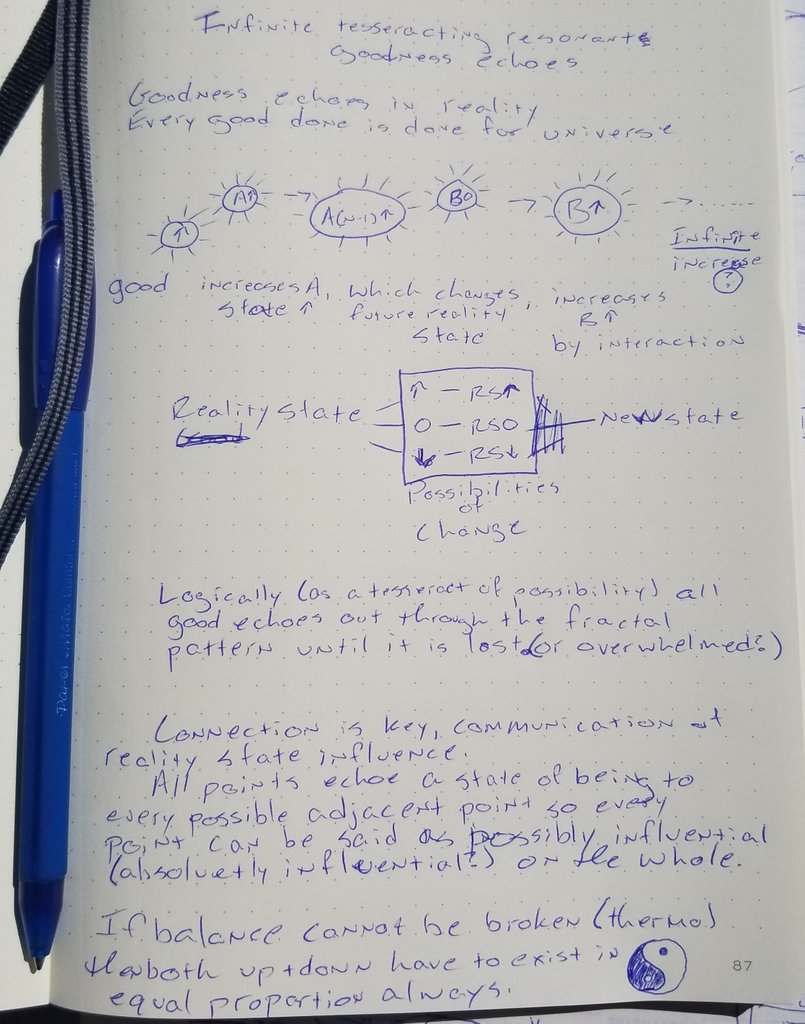 Infinite tesseracting resonante
Goodness echoes
Goodness echoes in reality
Every good done is done for universe
↑ A↑ → A(N-1)↑ B0 → B↑ →......
Infinite
increase
?
good increases A, which changes, increases
state ↑ future reality B↑
state by interaction
Reality State
↑ — RS↑
0 — RS0
↓ — RS↓
New state
Possibilities
of
Change
Logically (as a tesseract of possibility) all
good echoes out through the fractal
pattern until it is lost (or overwhelmed?)
Connection is key, communication of
reality state influence.
All points echoe a state of being to
every possible adjacent point so every
point can be said as possibly influential
(absoluetly influential?) on the whole.
If balance cannot be broken (thermo)
then both up + down have to exist in
equal proportion always.
87
Paper Mate